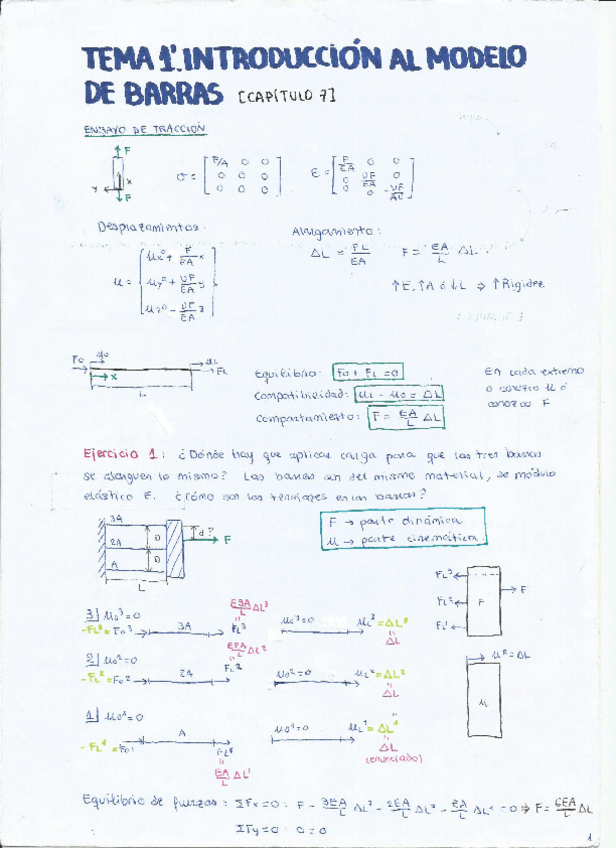 TEMA 1: INTRODUCCIÓN AL MODELO
DE BARRAS [CAPÍTULO 7]
ENSAYO DE TRACCIÓN
F
x
y
F
σ = [F/A 0 0
0 0 0
0 0 0]
ε = [F/EA 0 0
0 υF/EA 0
0 0 -υF/AE]
Desplazamientos:
u = [ux⁰ + F/EA x
uy⁰ + υF/EA y
uz⁰ - υF/EA z]
Alargamiento:
ΔL = FL/EA F = EA/L ΔL
↑E, ↑A ó ↓L ⇒ ↑Rigidez
F0 u0 uL FL
x
L
Equilibrio: F0 + FL = 0
Compatibilidad: uL - u0 = ΔL
Comportamiento: F = EA/L ΔL
En cada extremo
o conozco u ó
conozco F
Ejercicio 1: ¿Dónde hay que aplicar carga para que las tres barras
se alarguen lo mismo? Las barras son del mismo material, de módulo
elástico E. ¿Cómo son las tensiones en las barras?
3A
2A
A
D
D
d?
F
L
F → parte dinámica
u → parte cinemática
FL³
FL²
FL¹
F
F
3| u0³=0
-FL³ = F0³ 3A FL³
E3A/L ΔL³
u0³=0 uL³ = ΔL³
ΔL
2| u0²=0
-FL² = F0² 2A FL²
E2A/L ΔL²
u0²=0 uL² = ΔL²
ΔL
uR = ΔL
u
1| u0¹=0
-FL¹ = F0¹ A FL¹
EA/L ΔL¹
u0¹=0 uL¹ = ΔL¹
ΔL
(enunciado)
Equilibrio de fuerzas: ΣFx=0: F - 3EA/L ΔL³ - 2EA/L ΔL² - EA/L ΔL¹ = 0 ⇒ F = 6EA/L ΔL
ΣFy=0: 0=0
1